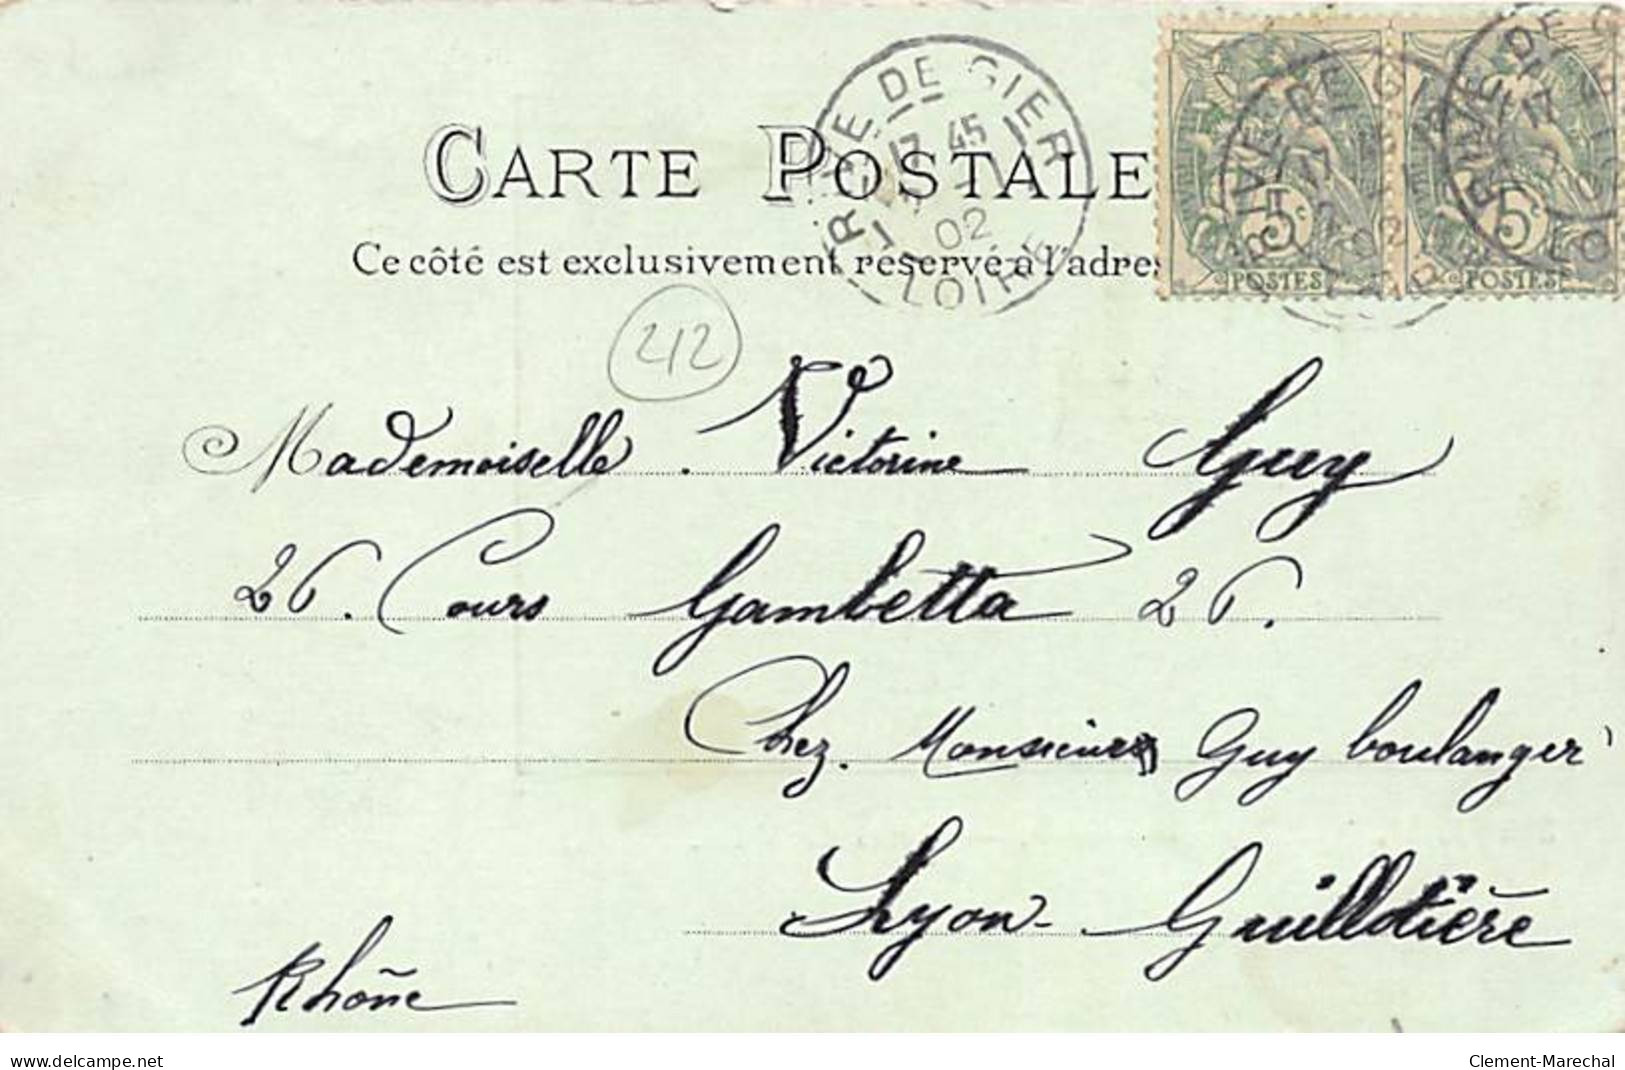 CARTE POSTALE
Ce côté est exclusivement réservé à l'adres
RIVE DE GIER
17 45
02
LOIRE
5c
POSTES
5c
POSTES
212
Mademoiselle. Victorine Guy
26. Cours Gambetta 26.
Chez. Monsieur Guy boulanger
Lyon-Guillotière
Rhône
delcampe.net
Clement-Marechal